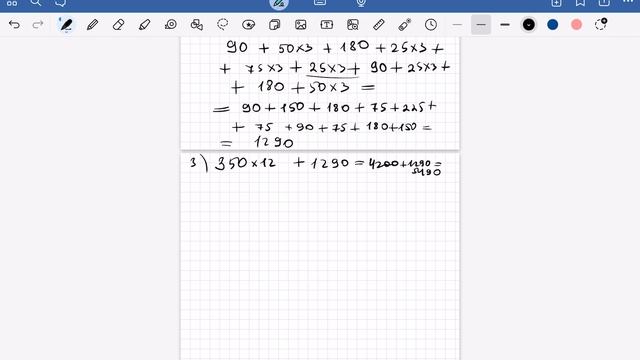 90 + 50×3 + 180 + 25×3 +
+ 75×3 + 25×3 + 90 + 25×3 +
+ 180 + 50×3 =
= 90 + 150 + 180 + 75 + 225 +
+ 75 + 90 + 75 + 180 + 150 =
= 1290
3) 350×12 + 1290 = 4200 + 1290 =
5490